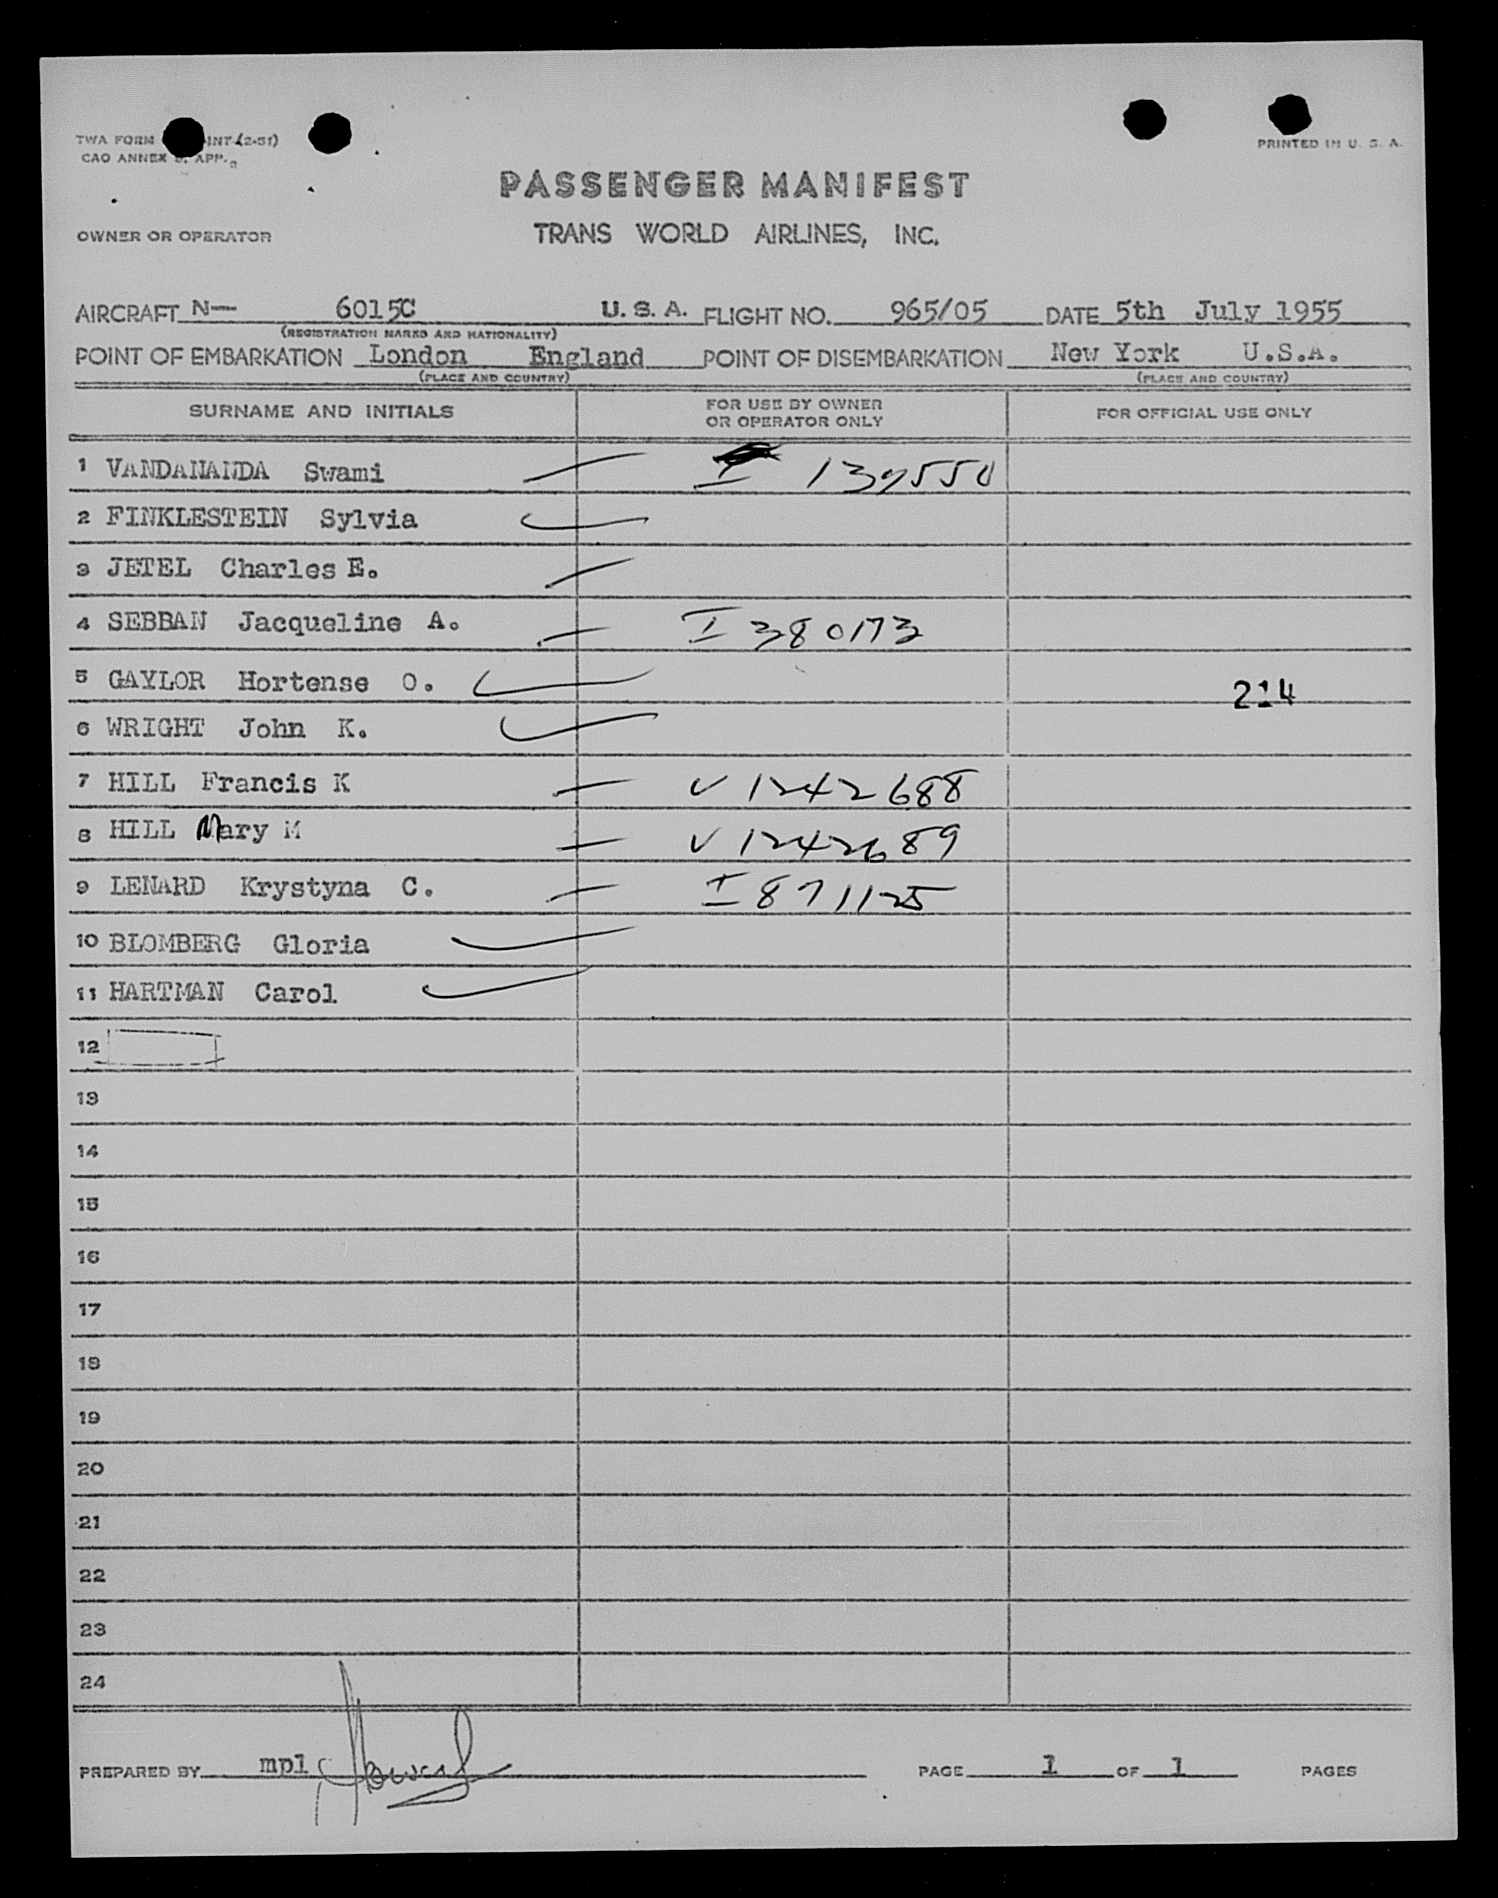 TWA FORM INT (2-51)
CAO ANNEX APP.
PRINTED IN U. S. A.
PASSENGER MANIFEST
OWNER OR OPERATOR
TRANS WORLD AIRLINES, INC.
AIRCRAFT N— 6015C U. S. A. FLIGHT NO. 965/05 DATE 5th July 1955
(REGISTRATION MARKS AND NATIONALITY)
POINT OF EMBARKATION London England POINT OF DISEMBARKATION New York U.S.A.
(PLACE AND COUNTRY) (PLACE AND COUNTRY)
SURNAME AND INITIALS
FOR USE BY OWNER
OR OPERATOR ONLY
FOR OFFICIAL USE ONLY
1 VANDANANDA Swami I
2 FINKLESTEIN Sylvia
3 JETEL Charles E.
4 SEBBAN Jacqueline A. I 380173
5 GAYLOR Hortense O.
214
6 WRIGHT John K.
7 HILL Francis K V 1242688
8 HILL Mary M V 1242689
9 LENARD Krystyna C. I 871125
10 BLOMBERG Gloria
11 HARTMAN Carol
12
13
14
15
16
17
18
19
20
21
22
23
24
PREPARED BY mpl PAGE 1 OF 1 PAGES